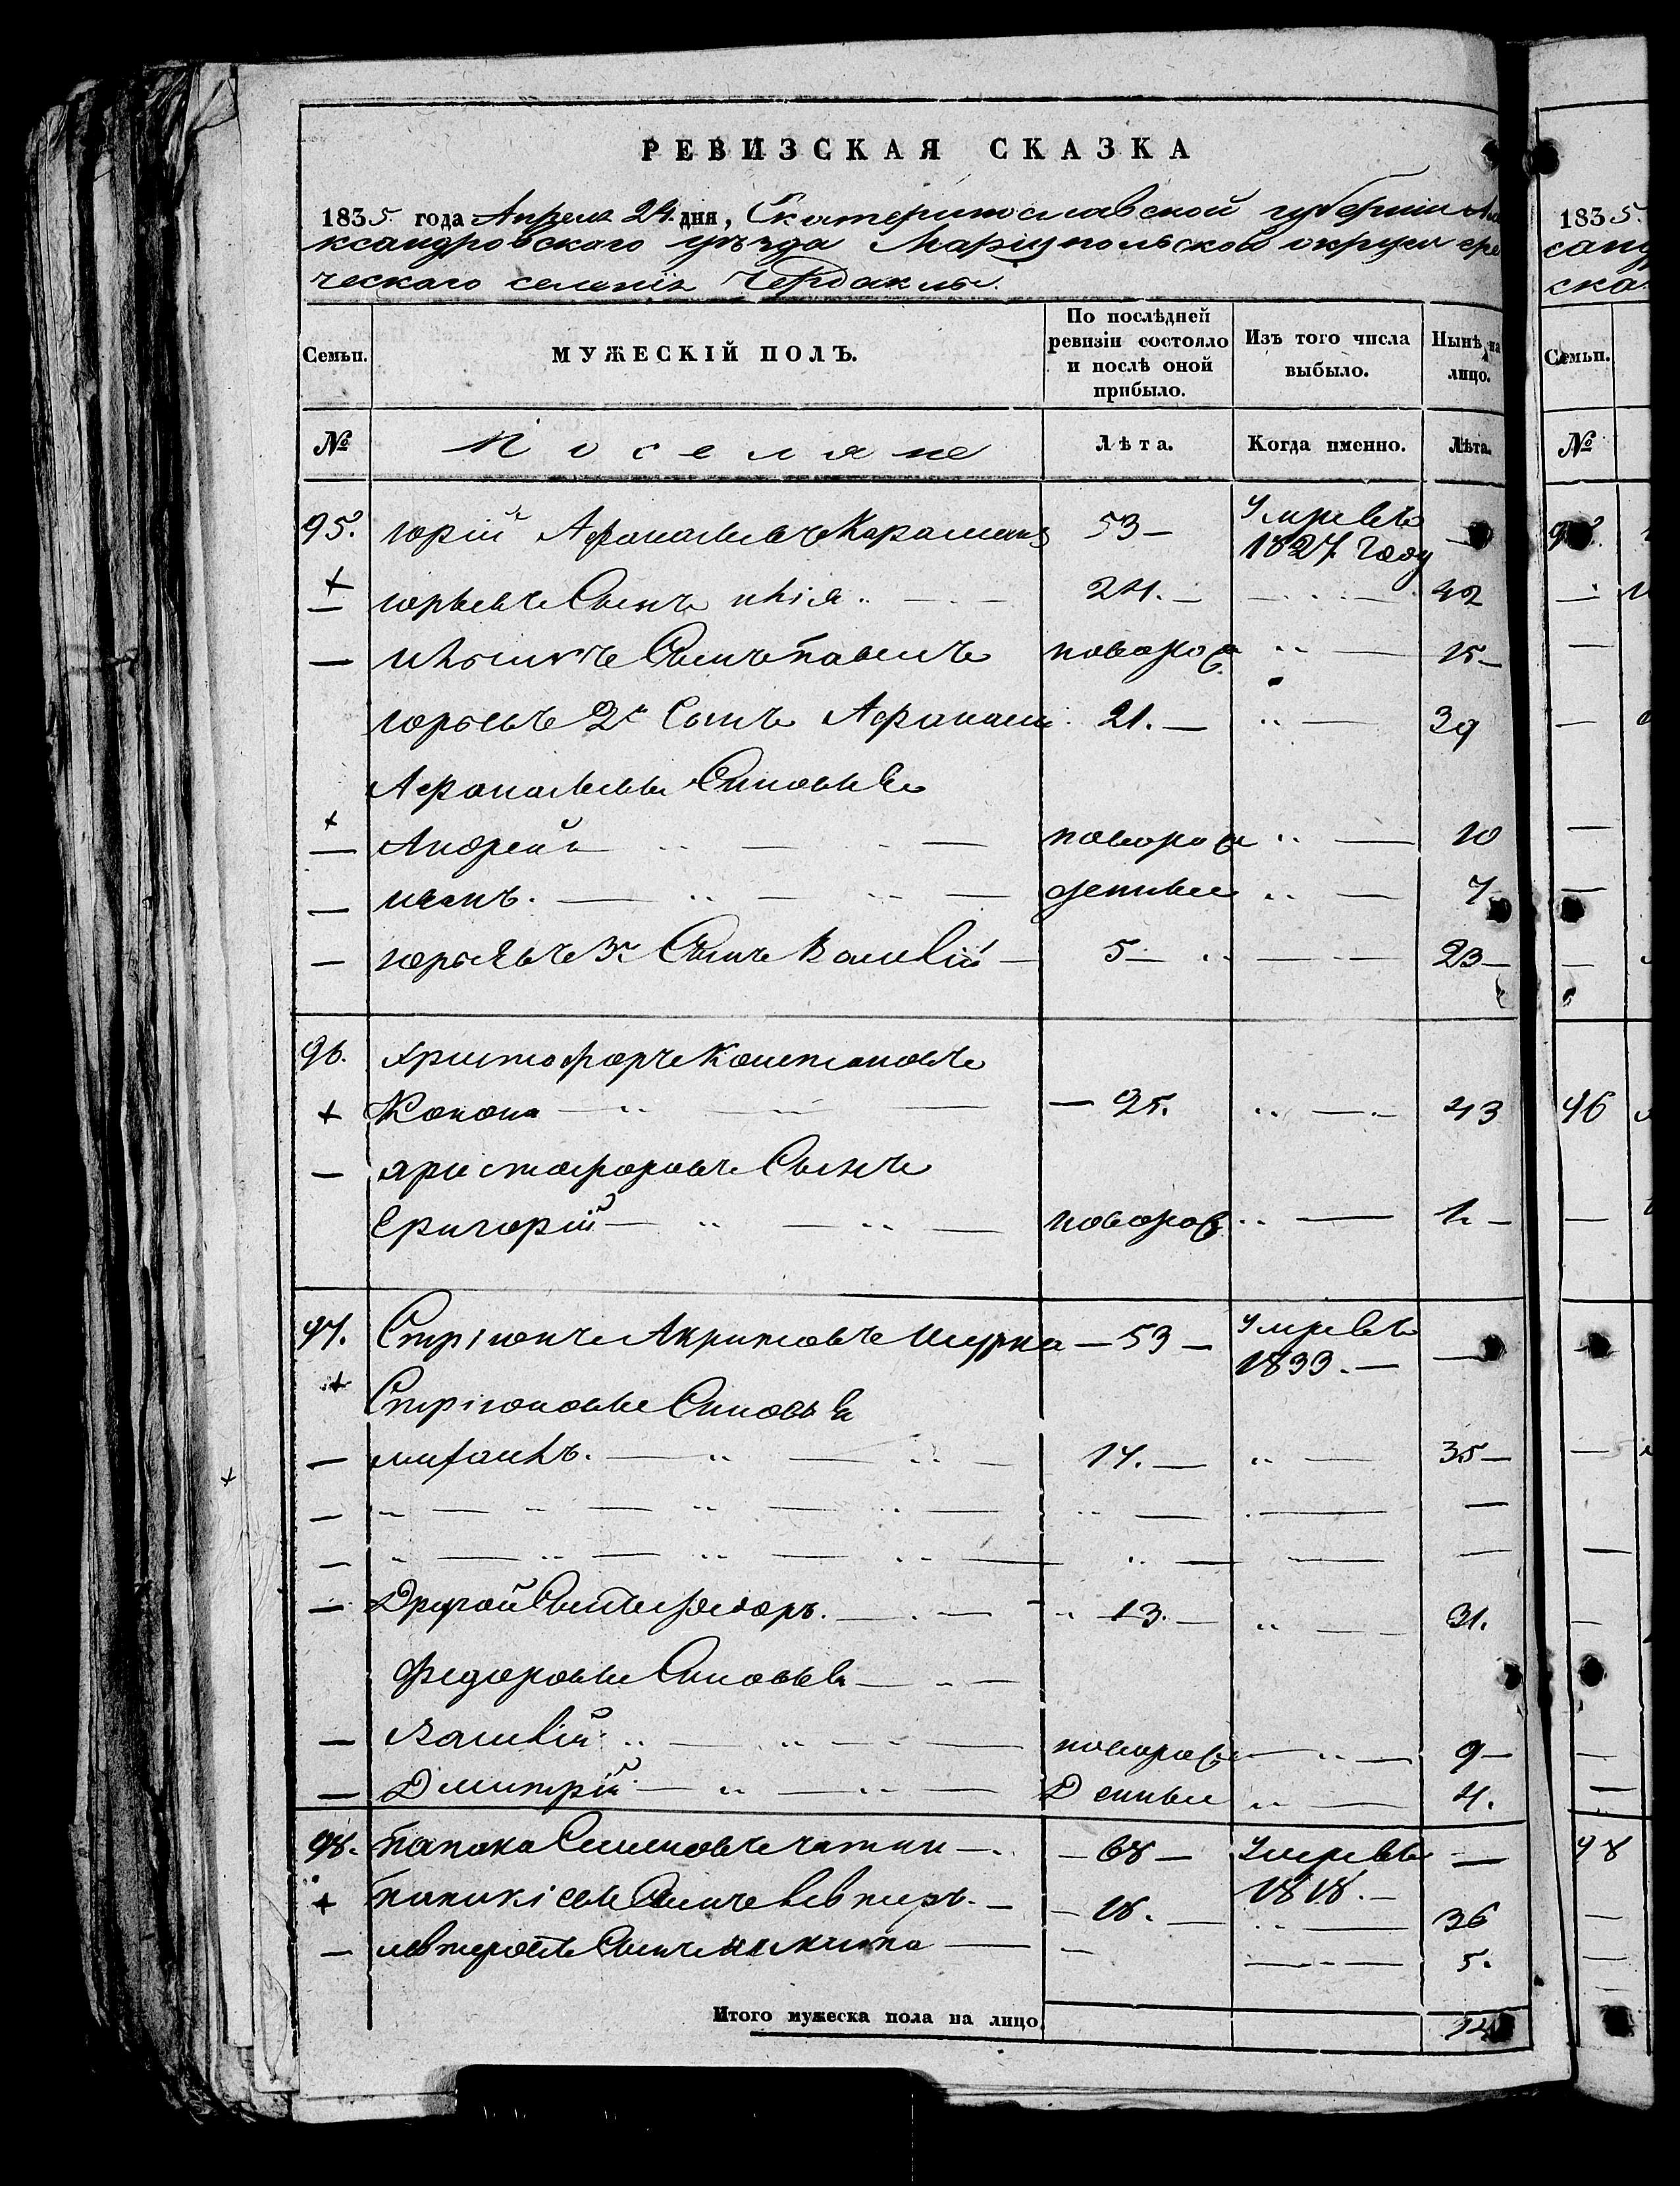 РЕВИЗСКАЯ СКАЗКА
1835 года Апреля 24. дня, Екатеринославской губернии Але
ксандровского уѣзда Маріупольской округи гре
ческаго селенія Чердаклы.
Семьи. МУЖЕСКІЙ ПОЛЪ. По послѣдней ревизіи состояло и послѣ оной прибыло. Изъ того числа выбыло. Нынѣ на лицо.
№ Поселяне Лѣта. Когда именно. Лѣта.
95. Юрій Афанасьевъ Караманъ 53 — Умре въ 1827 году —
Юрьевъ Сынъ Илія 24. — 42
— Ильинъ Сынъ Павелъ новорож 15 —
Юрьевъ 2й Сынъ Афанасій 21. — 39
Афанасьевы Синовья
— Андрей новорож 10
— Иванъ. денные 7
— Юрьевъ 3й Сынъ Василій — 5 — 23 —
96. Христофоръ Константиновъ
+ Конона — 25. 43
— Христофоровъ Сынъ
Григорій — новорож 1 —
97. Стріонъ Акритовъ Шурка — 53 — Умре въ 1833. — —
Стріоновы Синовья
— Михаилъ. 17. — 35 —
— Другой Сынъ Федоръ. 13. — 31.
Федоровы Синовья —
— Василій новорож 9 —
— Дмитрій Денные 4.
98. Папака Семеновъ Чатми — — 68 — Умре въ 1818. — —
+ Сынъ Левтеръ. — — 18. — 36
— Левтеровъ Сынъ Никита — — 5.
Итого мужеска пола на лицо
1835.
Семьи.
№
96
98